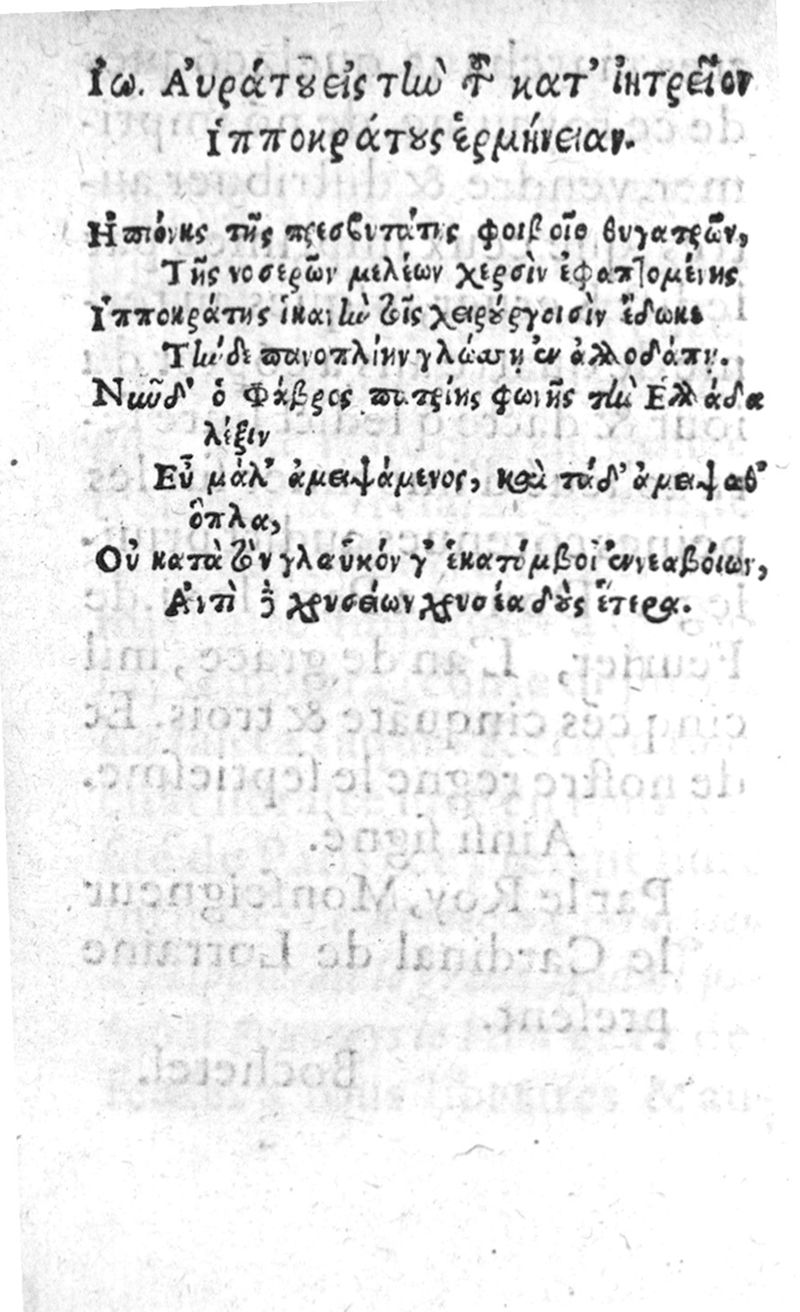 Ιω. Αὐράτου εἰς τὴν τῶν κατ' ἰητρεῖον
Ἱπποκράτους ἑρμήνειαν.
Ηπιόνης τῆς πρεσβυτάτης φοιβηΐο θυγατρῶν,
Τῆς νοσερῶν μελέων χερσὶν ἐφαπτομένης
Ἱπποκράτης ἱκανὴν τοῖς χειρούργοισὶν ἔδωκε
Τὴν δε πανοπλίην γλώσσῃ ἐν ἀλλοδάπῃ.
Νῦν δ' ὁ Φάβρος πατρίης φωνῆς τὴν Ελλάδα
λέξιν
Εὖ μάλ' ἀμειψάμενος, καὶ τάδ' ἀμειψαθ'
ὅπλα,
Οὐ κατὰ τὸν γλαῦκόν γ' ἑκατόμβοι' ἐννεαβόιων,
Ἀντὶ δὲ χρυσείων χρυσέα δοὺς ἕτερα.